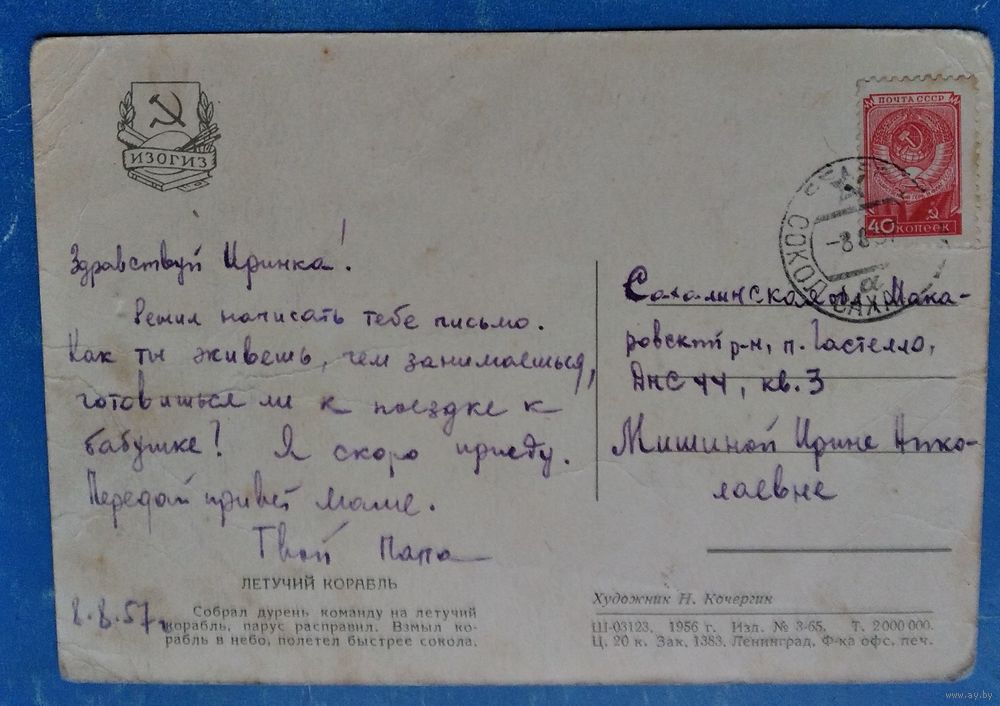 ИЗОГИЗ
ПОЧТА СССР
40 КОПЕЕК
-8 8 57
СОКОЛ
САХ
α
Здравствуй Иринка!
Решил написать тебе письмо.
Как ты живешь, чем занимаешься,
готовишься ли к поездке к
бабушке? Я скоро приеду.
Передай привет маме.
Твой Папа
8.8.57г.
Сахалинская обл. Мака-
ровский р-н, п. Гастелло,
ДНС 44, кв. 3
Мишиной Ирине Нико-
лаевне
ЛЕТУЧИЙ КОРАБЛЬ
Собрал дурень команду на летучий
корабль, парус расправил. Взмыл ко-
рабль в небо, полетел быстрее сокола.
Художник Н. Кочергин
Ш-03123. 1956 г. Изд. № 3-65. Т. 2000000.
Ц. 20 к. Зак. 1383. Ленинград. Ф-ка офс. печ.
www.ay.by